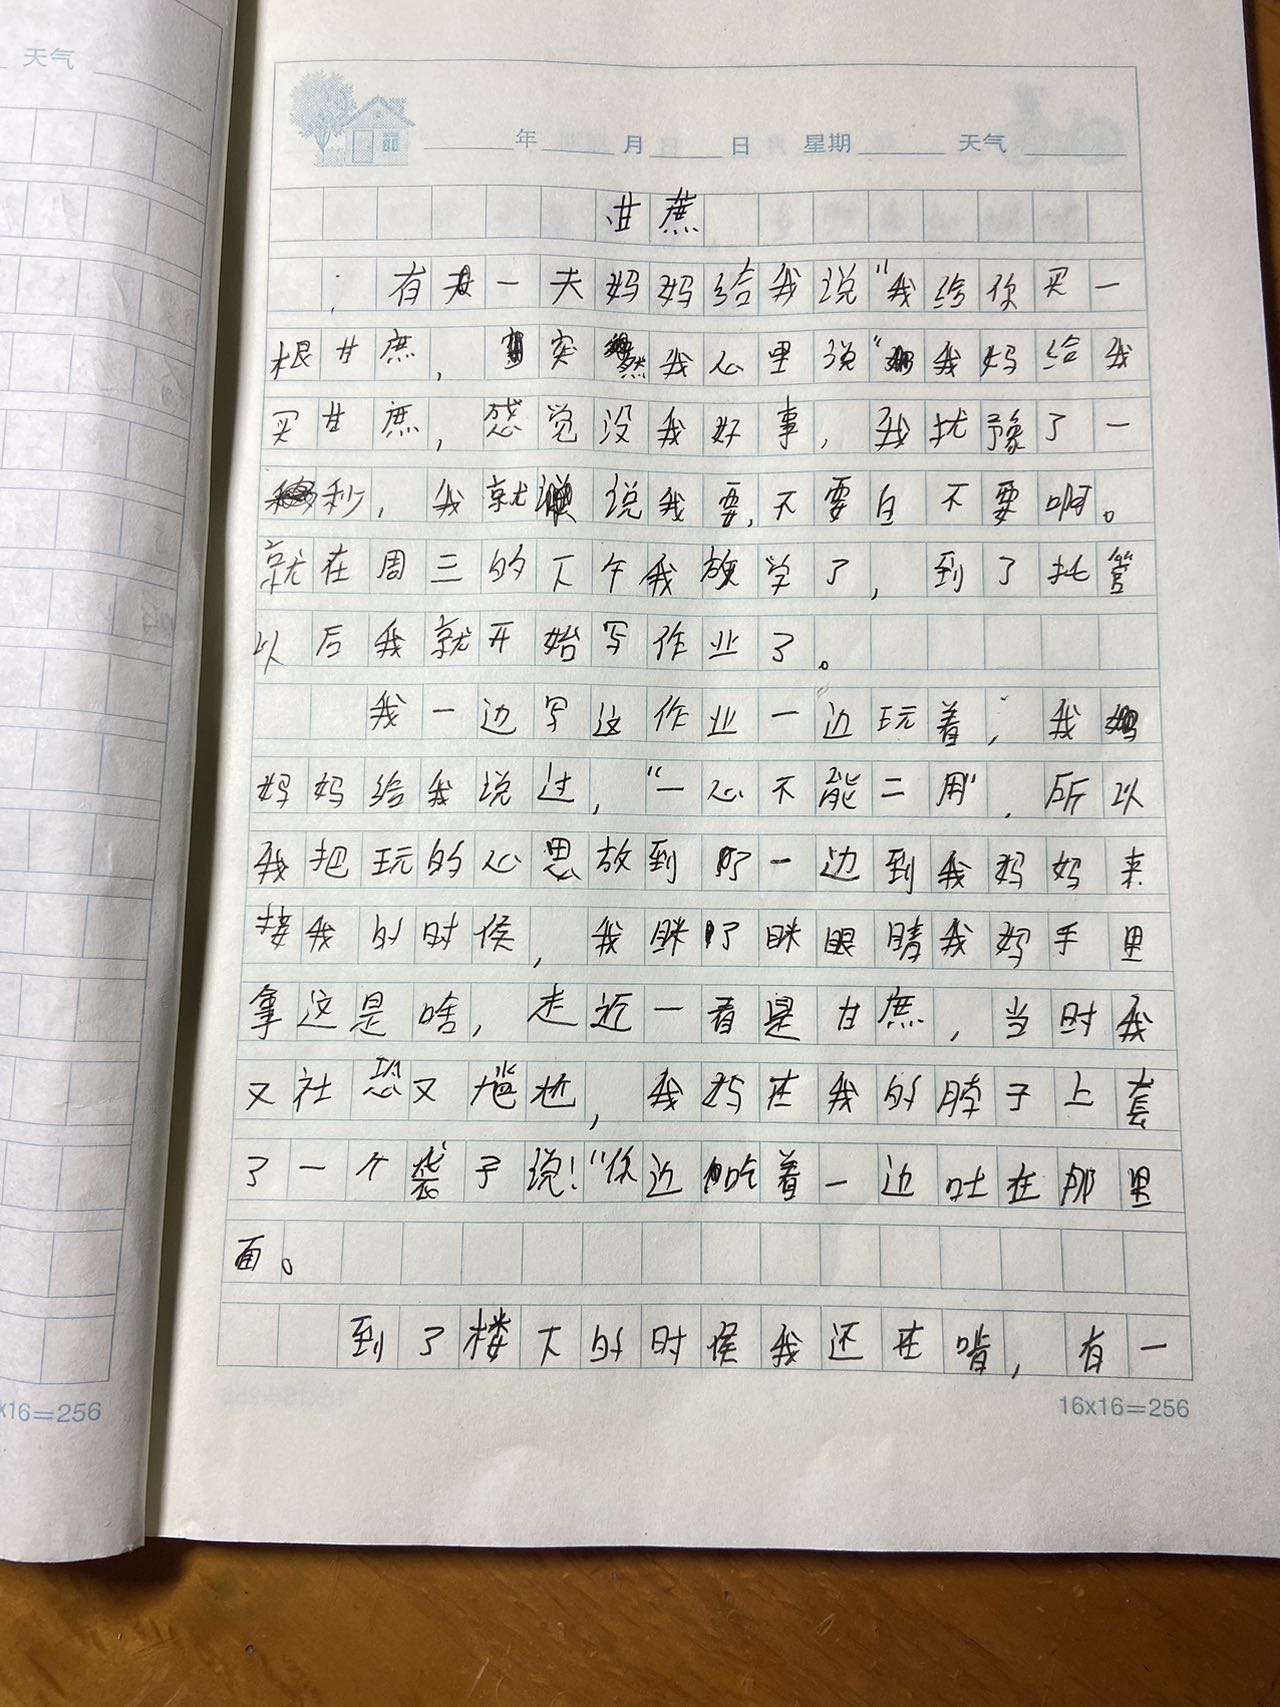 天气
年 月 日 星期 天气
甘蔗
有一天妈妈给我说“我给你买一
根甘蔗，突然我心里说“我妈给我
买甘蔗，感觉没我好事，我扰豫了一
秒，我就说我要，不要白不要啊。
就在周三的下午我放学了，到了托管
以后我就开始写作业了。
我一边写这作业一边玩着，我
妈妈给我说过，“一心不能二用”，所以
我把玩的心思放到了一边到我妈妈来
接我的时候，我眯了眯眼睛我妈手里
拿这是啥，走近一看是甘蔗，当时我
又社恐又尴尬，我妈在我的脖子上套
了一个袋子说！“你边吃着一边吐在那里
面。
到了楼下的时候我还在啃，有一
x16=256
16x16=256